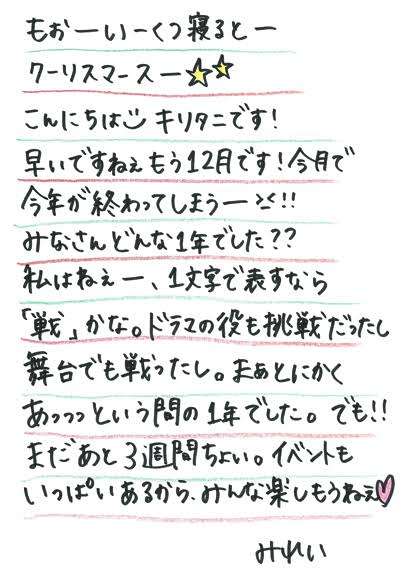 もおーいーくつ寝るとー
クーリスマースー☆☆
こんにちは☺ キリタニです!
早いですねぇもう12月です!今月で
今年が終わってしまうー>_<!!
みなさんどんな1年でした??
私はねぇー、1文字で表すなら
「戦」かな。ドラマの役も挑戦だったし
舞台でも戦ったし。まぁとにかく
あっっっという間の1年でした。でも!!
まだあと3週間ちょい。イベントも
いっぱいあるから、みんな楽しもうねぇ♥
みれい